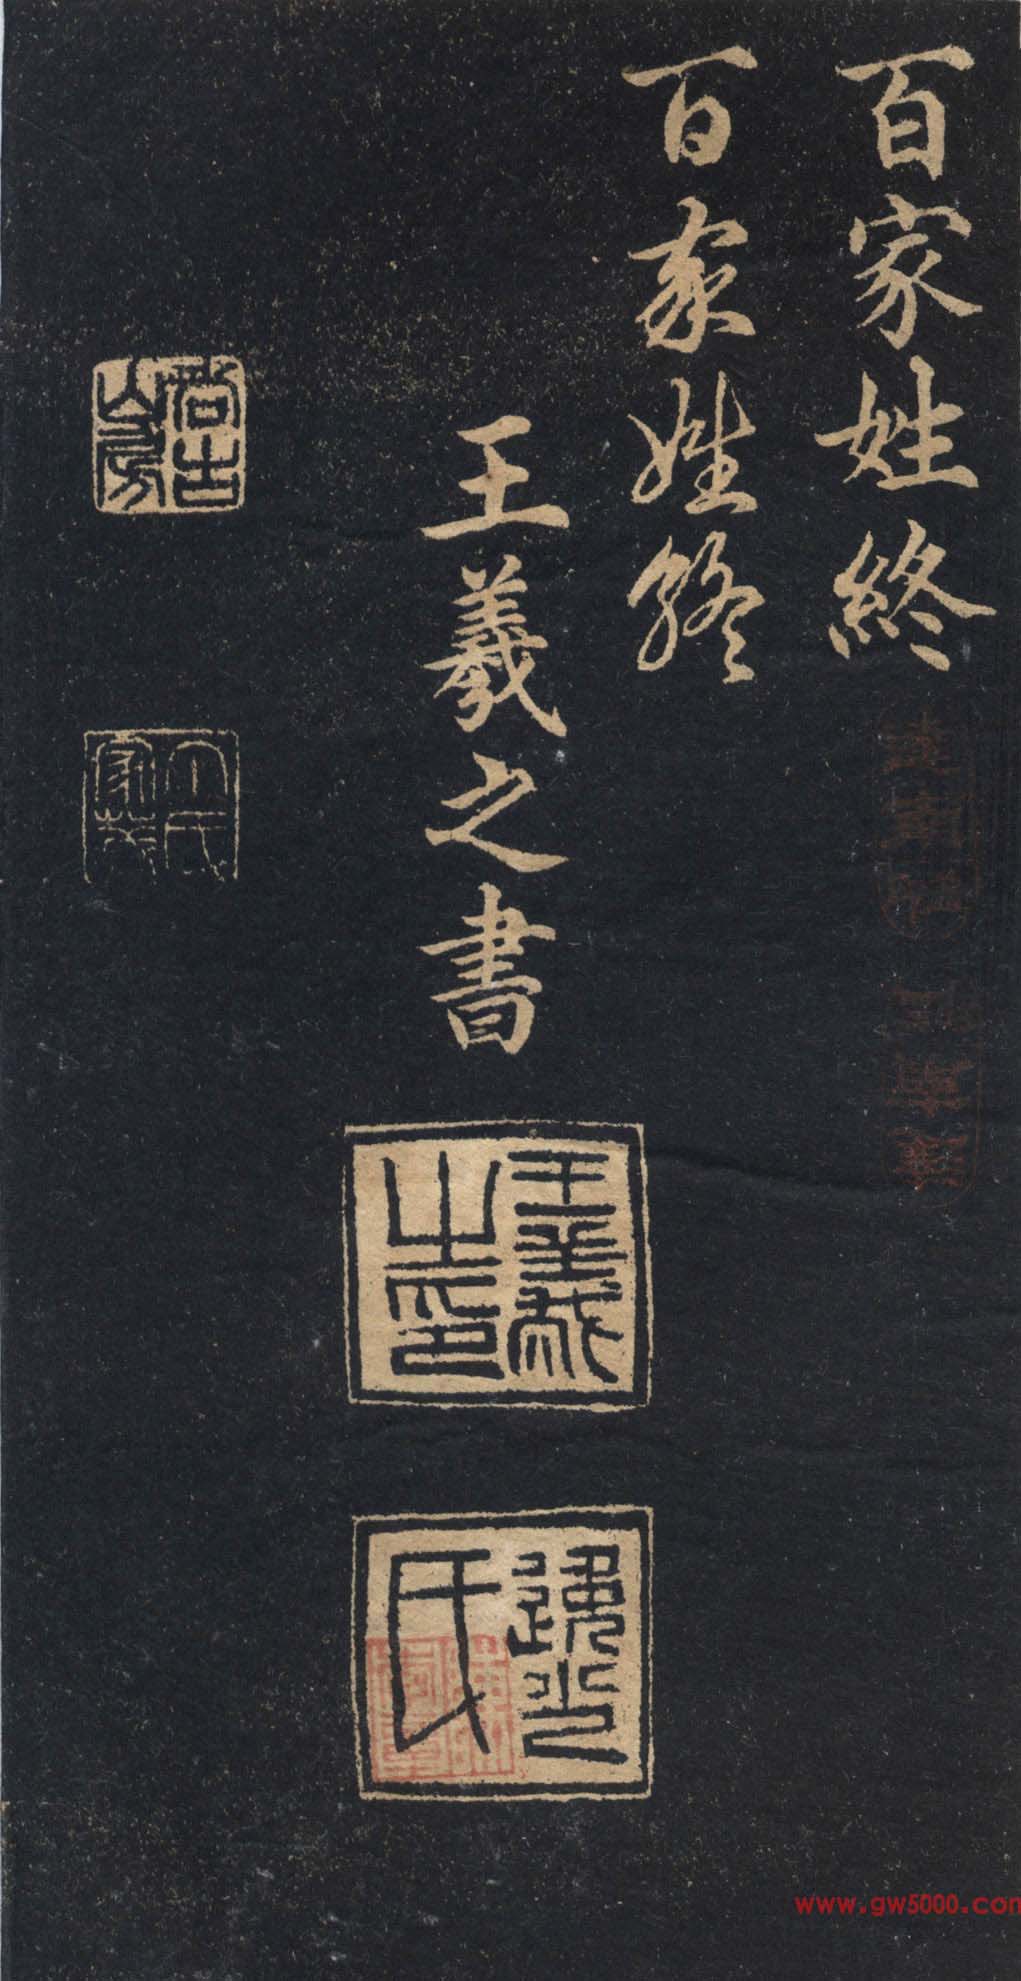 百家姓終
百家姓終
王羲之書
王羲之印
逸少氏
www.gw5000.com